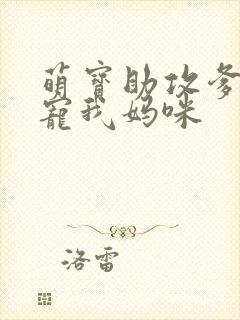 萌寶助攻爹
寵我媽咪
洛雷